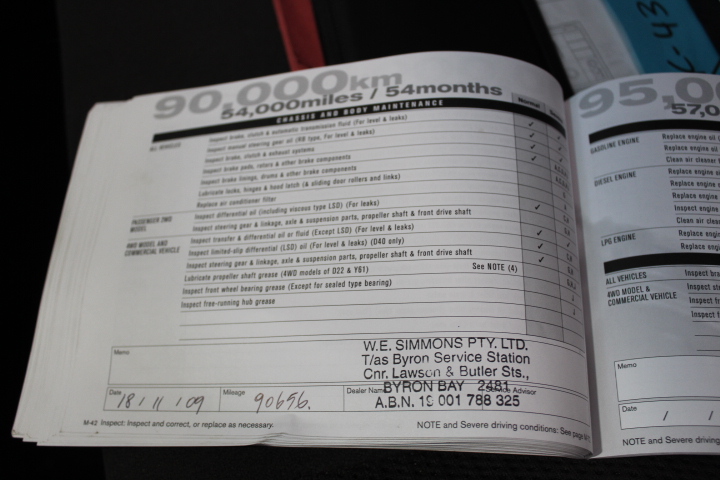 90,000km
54,000miles / 54months
CHASSIS AND BODY MAINTENANCE
Normal
ALL VEHICLES
Inspect brake, clutch & automatic transmission fluid (For level & leaks)
Inspect manual steering gear oil (RB type, For level & leaks)
Inspect brake, clutch & exhaust systems
Inspect brake pads, rotors & other brake components
Inspect brake linings, drums & other brake components
Lubricate locks, hinges & hood latch (& sliding door rollers and links)
Replace air conditioner filter
PASSENGER 2WD MODEL
Inspect differential oil (including viscous type LSD) (For leaks)
Inspect steering gear & linkage, axle & suspension parts, propeller shaft & front drive shaft
4WD MODEL AND COMMERCIAL VEHICLE
Inspect transfer & differential oil or fluid (Except LSD) (For level & leaks)
Inspect limited-slip differential (LSD) oil (For level & leaks) (D40 only)
Inspect steering gear & linkage, axle & suspension parts, propeller shaft & front drive shaft
Lubricate propeller shaft grease (4WD models of D22 & Y61) See NOTE (4)
Inspect front wheel bearing grease (Except for sealed type bearing)
Inspect free-running hub grease
Memo
W.E. SIMMONS PTY. LTD.
T/as Byron Service Station
Cnr. Lawson & Butler Sts.,
BYRON BAY 2481
A.B.N. 19 001 788 325
Date 18/11/09
Mileage 90656.
Dealer Name
Service Advisor
M-42 Inspect: Inspect and correct, or replace as necessary.
NOTE and Severe driving conditions: See page
95,0
57,0
GASOLINE ENGINE
Replace engine oil
Replace engine oil
Clean air cleaner
DIESEL ENGINE
Replace engine
Replace engine
Replace engine
Inspect engine
Clean air clea
LPG ENGINE
Replace engi
Replace engi
ALL VEHICLES
Inspect bra
4WD MODEL & COMMERCIAL VEHICLE
Inspect ste
Inspect fr
Inspect
Memo
Date / /
NOTE and Severe driving